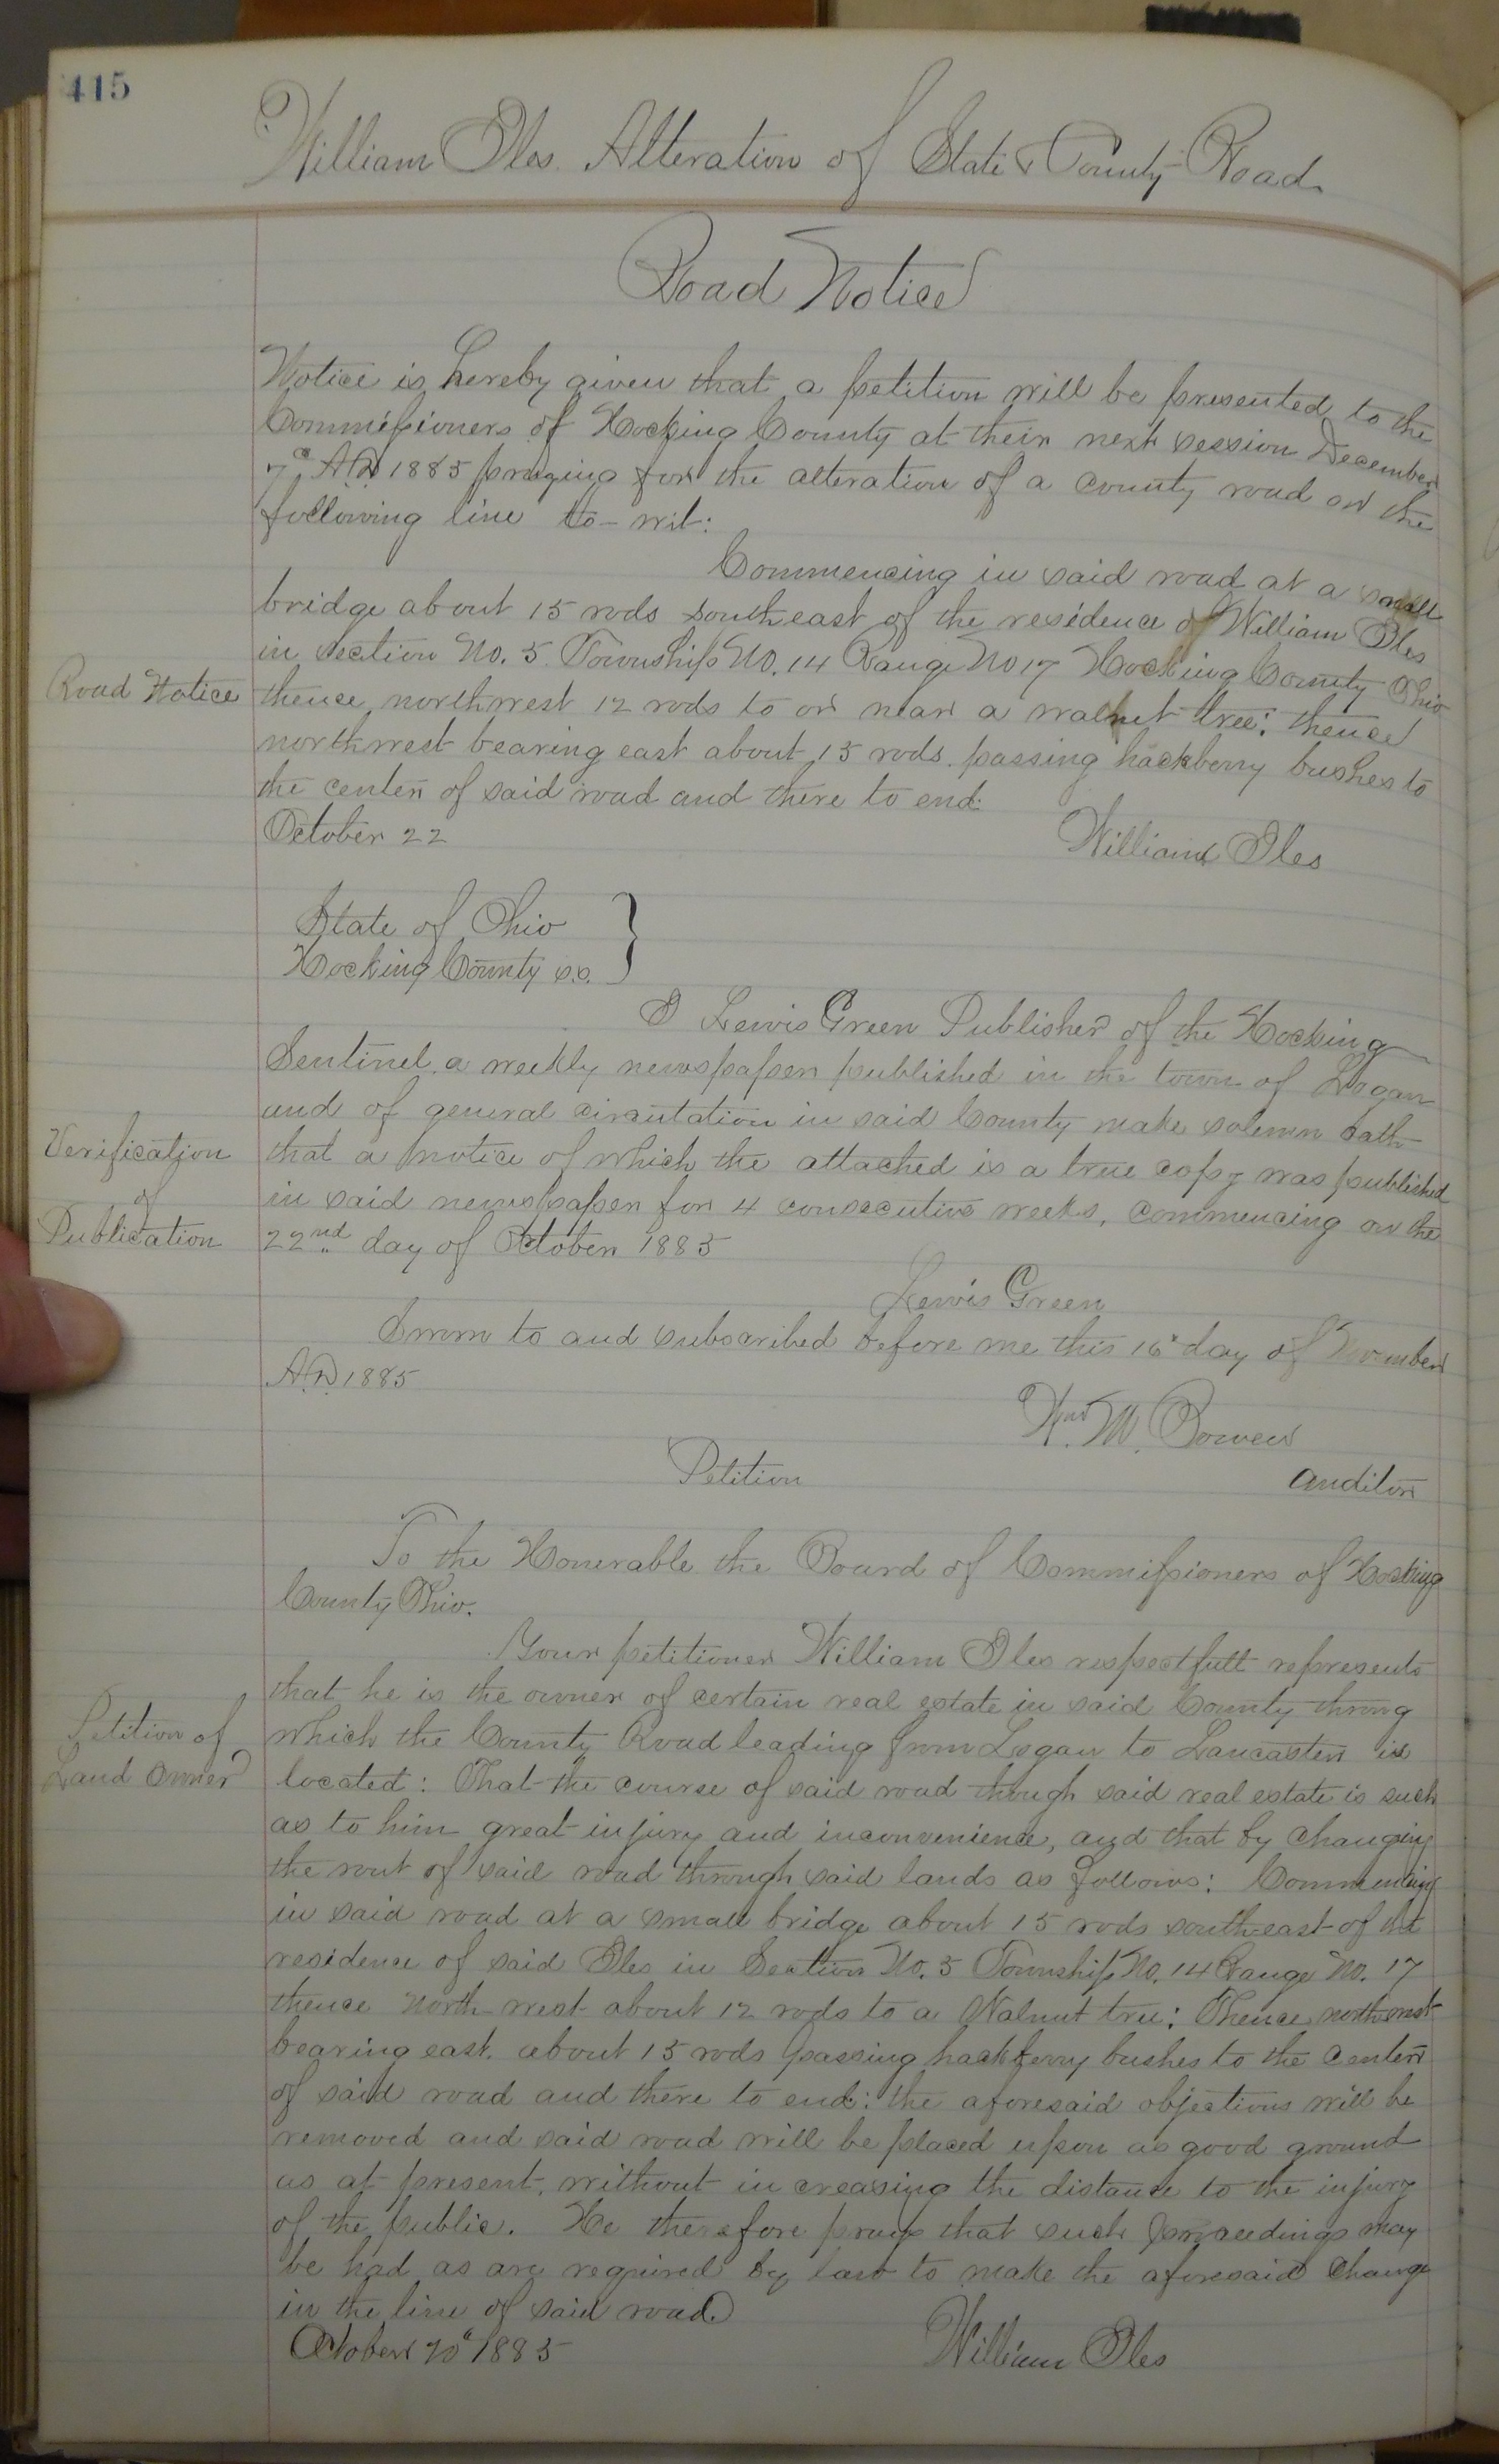 415
William Iles. Alteration of State & County Road.
Road Notice
Notice is hereby given that a petition will be presented to the
Commissioners of Hocking County at their next session December
7" A.D. 1885 praying for the alteration of a county road on the
following line to-wit:
Commencing in said road at a small
bridge about 15 rods southeast of the residence of William Iles
in section No. 5. Township No. 14 Range No 17 Hocking County Ohio
Road Notice
thence northwest 12 rods to or near a walnut tree: thence
northwest bearing east about 15 rods. passing hackberry bushes to
the center of said road and there to end.
October 22
William Iles
State of Ohio
Hocking County ss.
I Lewis Green Publisher of the Hocking
Sentinel, a weekly newspaper published in the town of Logan
and of general circulation in said County make solemn oath
Verification
of
Publication
that a notice of which the attached is a true copy was published
in said newspaper for 4 consecutive weeks, commencing on the
22nd day of October 1885
Lewis Green
Sworn to and subscribed before me this 16" day of November
A.D. 1885
W. Bowen
Auditor
Petition
To the Honerable the Board of Commissioners of Hocking
County Ohio.
Your petitioner William Iles respectfull represents
that he is the owner of certain real estate in said County throug
Petition of
Land Owner
which the County Road leading from Logan to Lancaster is
located: That the course of said road though said real estate is such
as to him great injury and inconvenience, and that by changing
the rout of said road through said lands as follows: Commencing
in said road at a small bridge about 15 rods southeast of the
residence of said Iles in Section No. 5 Township No. 14 Range No. 17
thence North-west about 12 rods to a Walnut tree: Thence northwest
bearing east. about 15 rods passing hackberry bushes to the center
of said road and there to end: the aforesaid objections will be
removed and said road will be placed upon as good ground
as at present, without increasing the distance to the injury
of the public. He therefore prays that such proceedings may
be had as are required by law to make the aforesaid change
in the line of said road.
October 20" 1885
William Iles